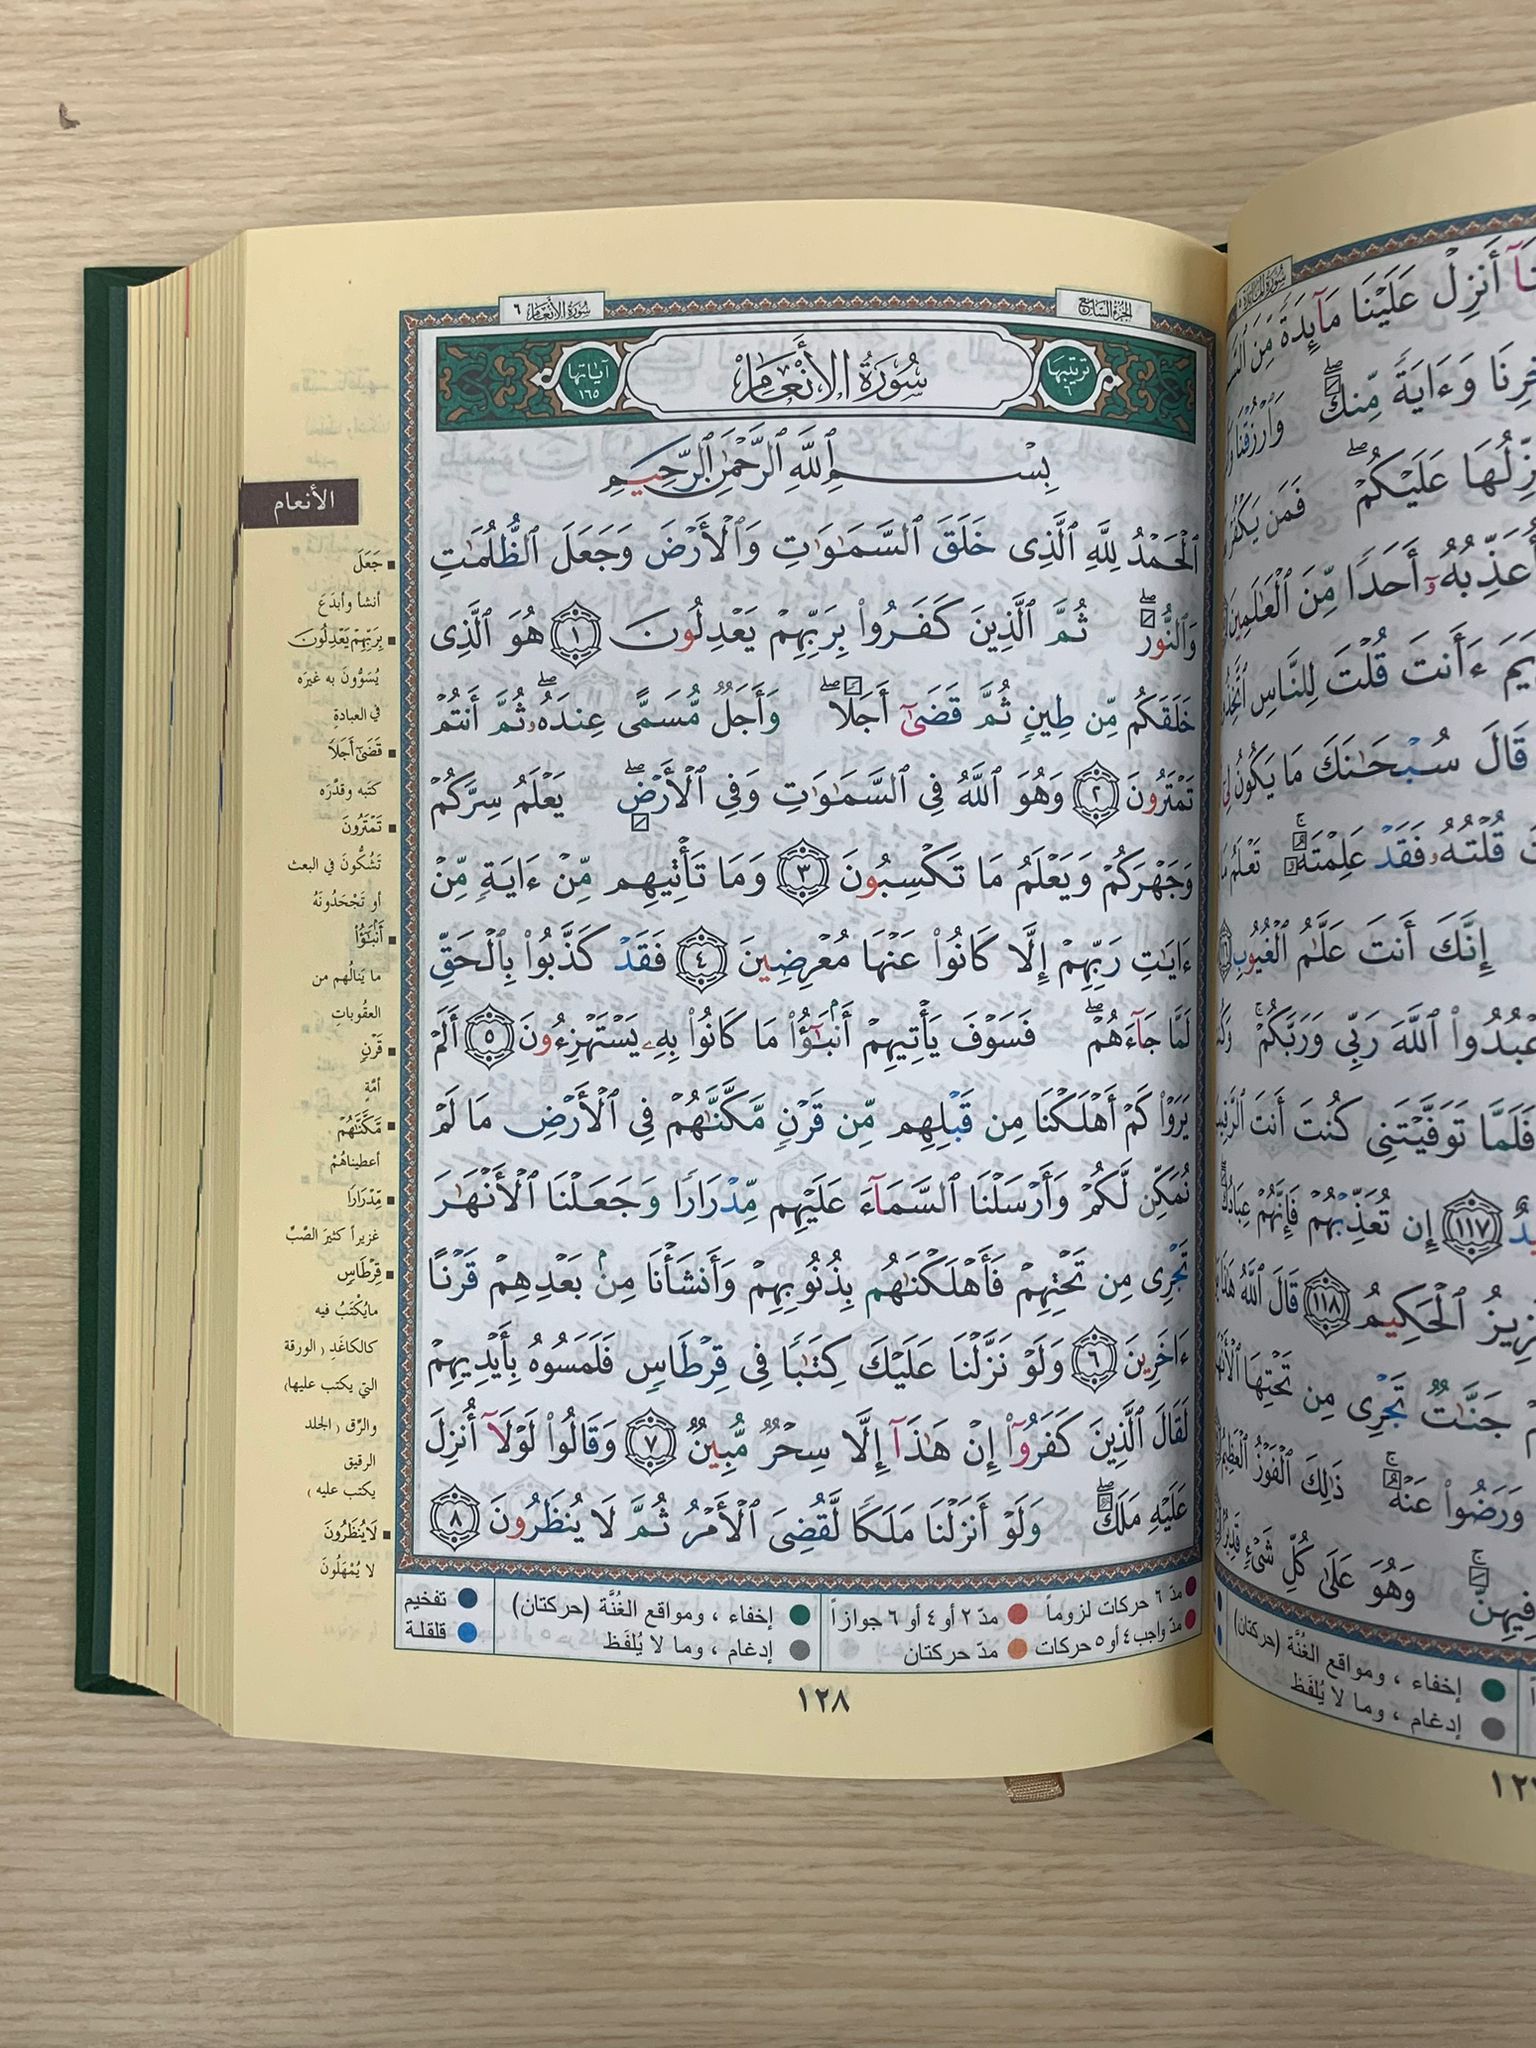 سُورَةُ الأَنْعَام ٦
الجُزْءُ السَّابِعُ
ترتيبها ٦
سُورَةُ الأَنْعَامِ
آياتها ١٦٥
بِسْمِ ٱللَّهِ ٱلرَّحْمَٰنِ ٱلرَّحِيمِ
ٱلْحَمْدُ لِلَّهِ ٱلَّذِى خَلَقَ ٱلسَّمَٰوَٰتِ وَٱلْأَرْضَ وَجَعَلَ ٱلظُّلُمَٰتِ
وَٱلنُّورَ ۖ ثُمَّ ٱلَّذِينَ كَفَرُوا۟ بِرَبِّهِمْ يَعْدِلُونَ ١ هُوَ ٱلَّذِى
خَلَقَكُم مِّن طِينٍ ثُمَّ قَضَىٰٓ أَجَلًا ۖ وَأَجَلٌ مُّسَمًّى عِندَهُۥ ۖ ثُمَّ أَنتُمْ
تَمْتَرُونَ ٢ وَهُوَ ٱللَّهُ فِى ٱلسَّمَٰوَٰتِ وَفِى ٱلْأَرْضِ ۖ يَعْلَمُ سِرَّكُمْ
وَجَهْرَكُمْ وَيَعْلَمُ مَا تَكْسِبُونَ ٣ وَمَا تَأْتِيهِم مِّنْ ءَايَةٍ مِّنْ
ءَايَٰتِ رَبِّهِمْ إِلَّا كَانُوا۟ عَنْهَا مُعْرِضِينَ ٤ فَقَدْ كَذَّبُوا۟ بِٱلْحَقِّ
لَمَّا جَآءَهُمْ ۖ فَسَوْفَ يَأْتِيهِمْ أَنۢبَٰٓؤُا۟ مَا كَانُوا۟ بِهِۦ يَسْتَهْزِءُونَ ٥ أَلَمْ
يَرَوْا۟ كَمْ أَهْلَكْنَا مِن قَبْلِهِم مِّن قَرْنٍ مَّكَّنَّٰهُمْ فِى ٱلْأَرْضِ مَا لَمْ
نُمَكِّن لَّكُمْ وَأَرْسَلْنَا ٱلسَّمَآءَ عَلَيْهِم مِّدْرَارًا وَجَعَلْنَا ٱلْأَنْهَٰرَ
تَجْرِى مِن تَحْتِهِمْ فَأَهْلَكْنَٰهُم بِذُنُوبِهِمْ وَأَنشَأْنَا مِنۢ بَعْدِهِمْ قَرْنًا
ءَاخَرِينَ ٦ وَلَوْ نَزَّلْنَا عَلَيْكَ كِتَٰبًا فِى قِرْطَاسٍ فَلَمَسُوهُ بِأَيْدِيهِمْ
لَقَالَ ٱلَّذِينَ كَفَرُوٓا۟ إِنْ هَٰذَآ إِلَّا سِحْرٌ مُّبِينٌ ٧ وَقَالُوا۟ لَوْلَآ أُنزِلَ
عَلَيْهِ مَلَكٌ ۖ وَلَوْ أَنزَلْنَا مَلَكًا لَّقُضِىَ ٱلْأَمْرُ ثُمَّ لَا يُنظَرُونَ ٨
الأنعام
جَعَلَ
أنشأ وأبدَعَ
بِرَبِّهِمْ يَعْدِلُونَ
يُسَوُّونَ به غيرَه
في العبادةِ
قَضَىٰٓ أَجَلًا
كتَبه وقدَّرَه
تَمْتَرُونَ
تَشُكُّونَ في البعث
أو تَجْحَدُونَهُ
أَنۢبَٰٓؤُا۟
ما يَنالُهم من
العقُوباتِ
قَرْنٍ
أمَّةٍ
مَّكَّنَّٰهُمْ
أعطيناهُمْ
مِّدْرَارًا
غزيراً كثيرَ الصَّبِّ
قِرْطَاسٍ
مايُكْتَبُ فيه
كالكاغَدِ (الورقة
التي يكتب عليها)
والرِّق (الجلد
الرقيق
يكتب عليه)
لَا يُنظَرُونَ
لا يُمْهَلُونَ
مدّ ٦ حركات لزوماً
مدّ ٢ أو ٤ أو ٦ جوازاً
مدّ واجب ٤ أو ٥ حركات
مدّ حركتان
إخفاء ، ومواقع الغُنَّة (حركتان)
إدغام ، وما لا يُلفَظ
تفخيم
قلقلة
١٢٨
أَنزِلْ عَلَيْنَا مَآئِدَةً مِّنَ
وَءَايَةً مِّنكَ ۖ
عَلَيْكُمْ ۖ فَمَن يَكْفُرْ
أُعَذِّبُهُۥٓ أَحَدًا مِّنَ ٱلْعَٰلَمِينَ
ءَأَنتَ قُلْتَ لِلنَّاسِ
قَالَ سُبْحَٰنَكَ مَا يَكُونُ
قُلْتُهُۥ فَقَدْ عَلِمْتَهُۥ ۚ تَعْلَمُ
إِنَّكَ أَنتَ عَلَّٰمُ ٱلْغُيُوبِ
ٱعْبُدُوا۟ ٱللَّهَ رَبِّى وَرَبَّكُمْ ۚ
فَلَمَّا تَوَفَّيْتَنِى كُنتَ أَنتَ
١١٧ إِن تُعَذِّبْهُمْ فَإِنَّهُمْ عِبَادُكَ ۖ
ٱلْحَكِيمُ ١١٨ قَالَ ٱللَّهُ هَٰذَا
جَنَّٰتٌ تَجْرِى مِن تَحْتِهَا
وَرَضُوا۟ عَنْهُ ۚ ذَٰلِكَ ٱلْفَوْزُ ٱلْعَظِيمُ
فِيهِنَّ ۚ وَهُوَ عَلَىٰ كُلِّ شَىْءٍ قَدِيرٌۢ
إخفاء ، ومواقع الغُنَّة (حركتان)
إدغام ، وما لا يُلفَظ